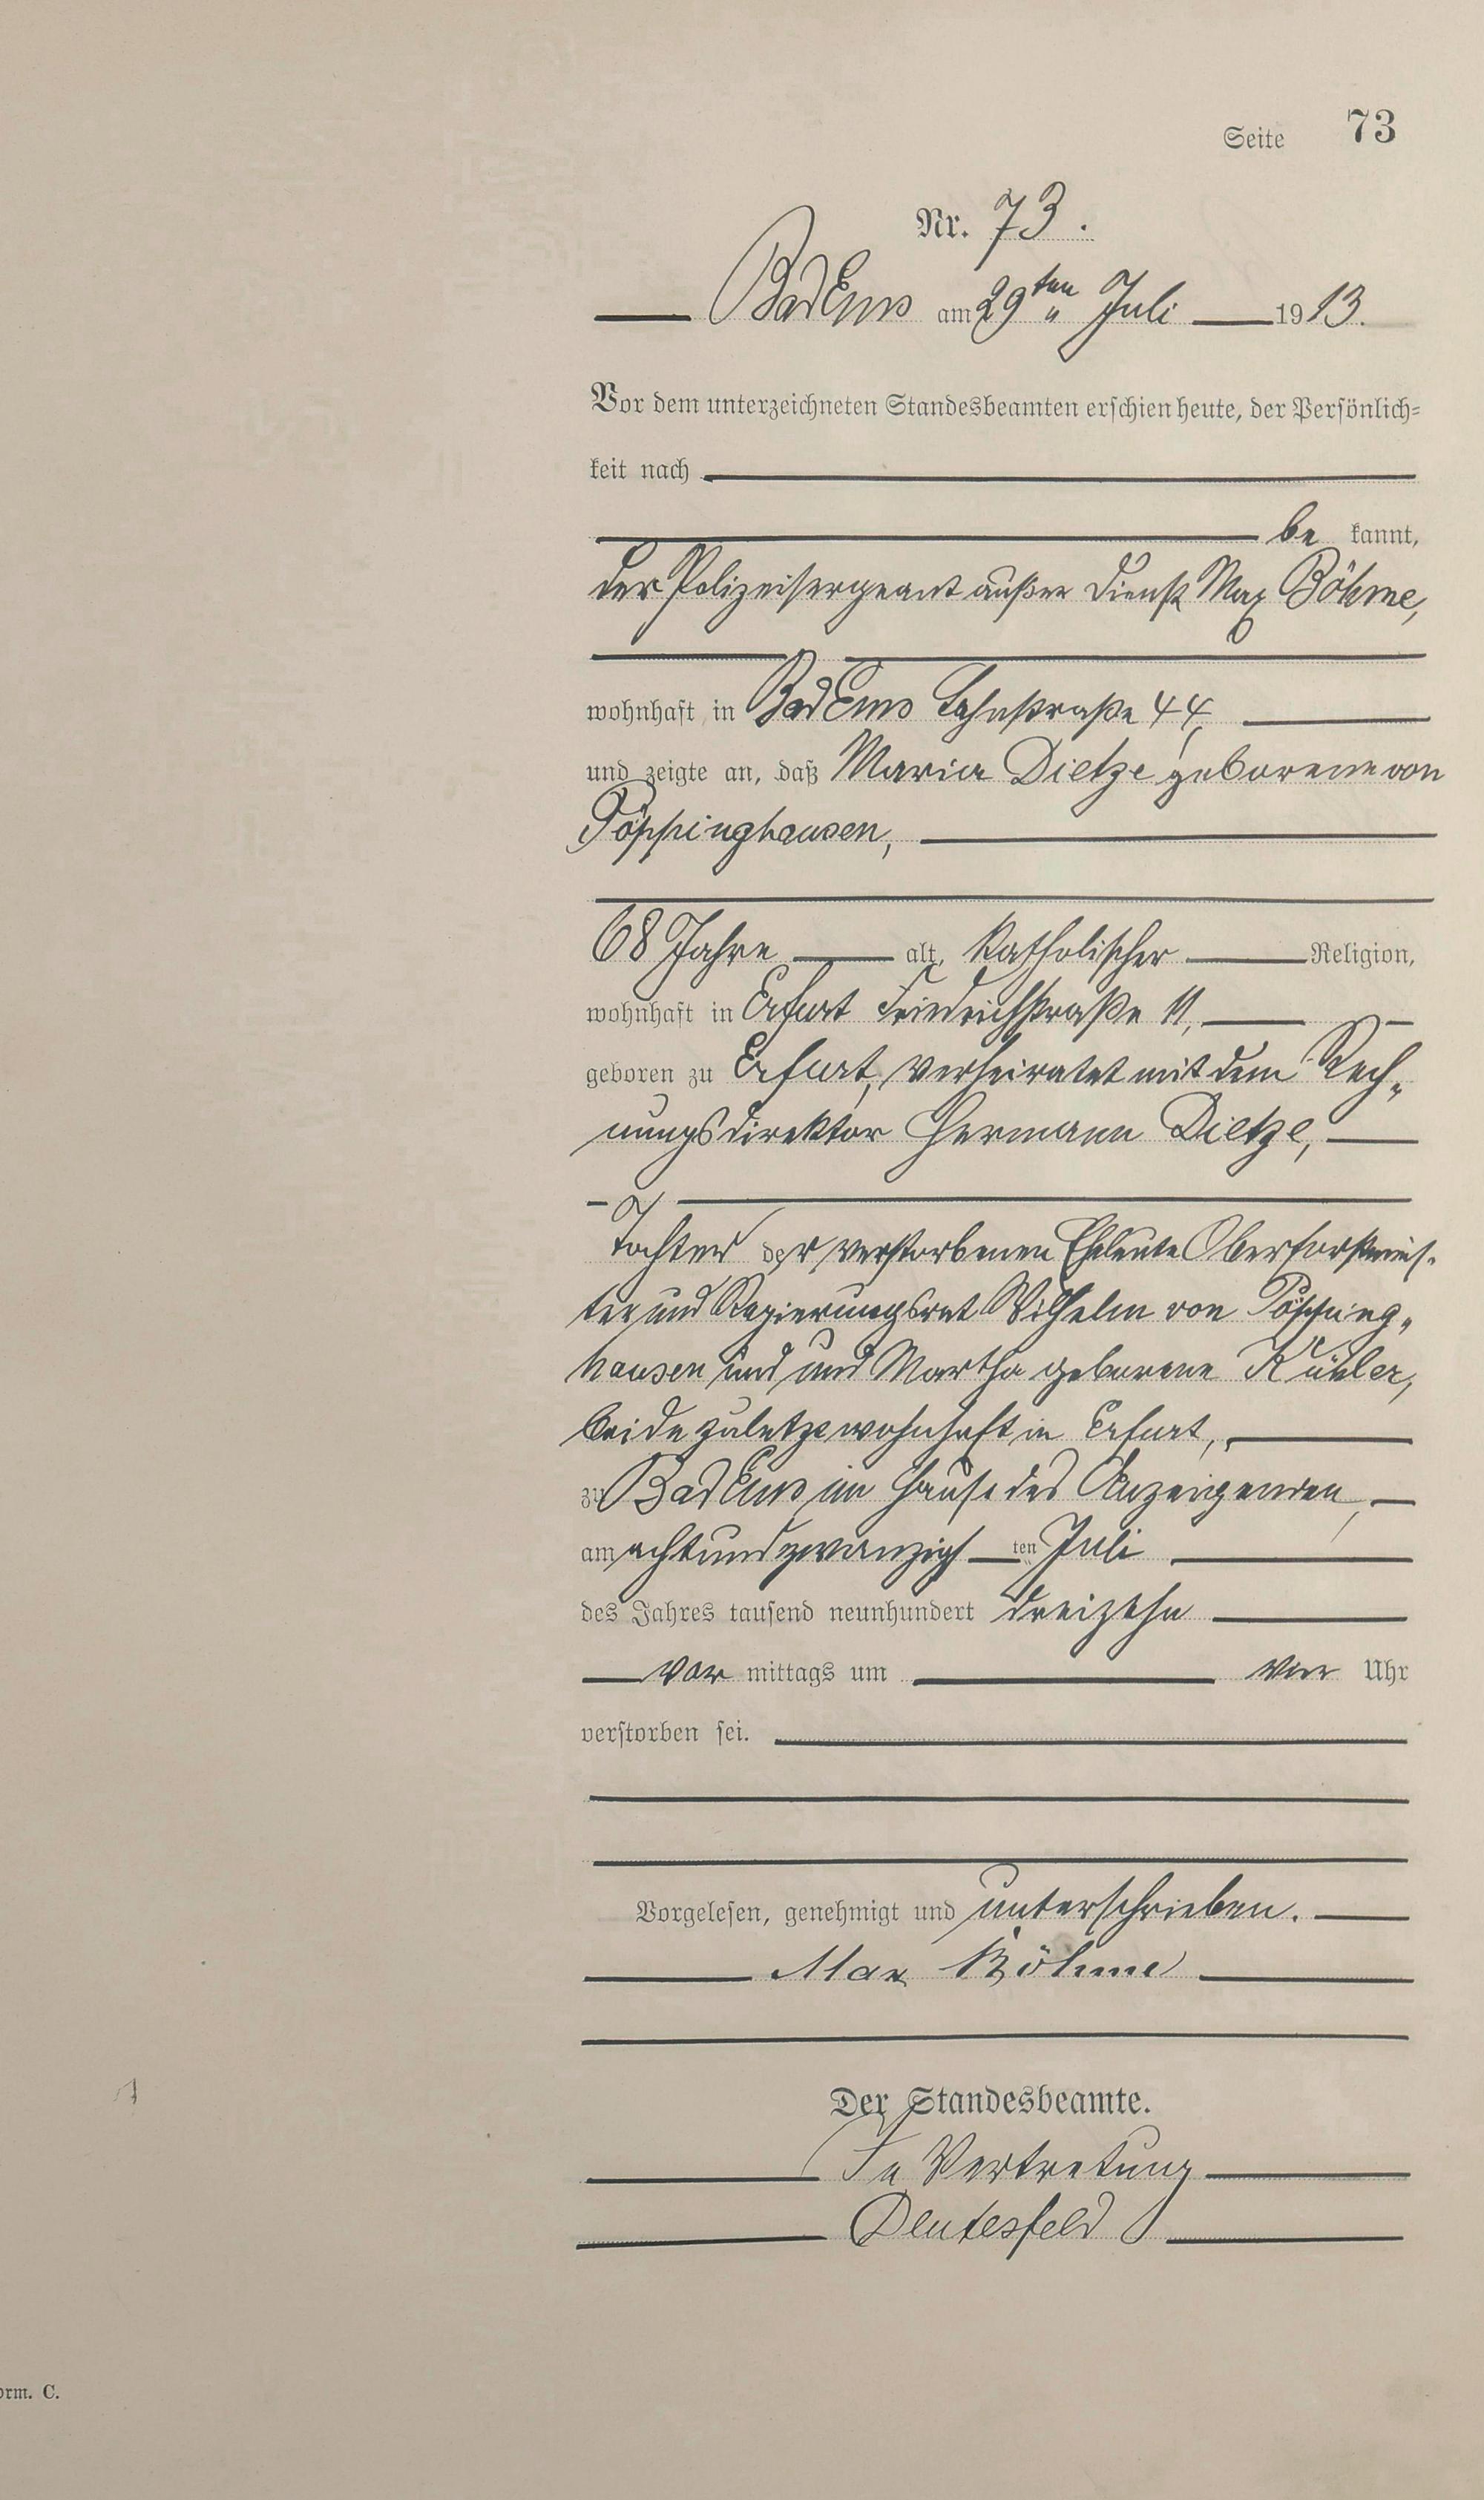 Seite 73
Nr. 73.
Bad Ems am 29ten Juli 1913.
Vor dem unterzeichneten Standesbeamten erschien heute, der Persönlich-
keit nach
be kannt,
der Polizeisergeant außer Dienst Max Böhme,
wohnhaft in Bad Ems Lahnstraße 44,
und zeigte an, daß Maria Dietze geborene von
Pöppinghausen,
68 Jahre alt, katholischer Religion,
wohnhaft in Erfurt Friedrichstraße 11,
geboren zu Erfurt, verheiratet mit dem Rech-
nungsdirektor Hermann Dietze,
Tochter der verstorbenen Eheleute Oberforstmeis-
ter und Regierungsrat Wilhelm von Pöpping-
hausen und und Martha geborene
beide zuletzt wohnhaft in Erfurt,
zu Bad Ems im Hause des Anzeigenden,
am achtundzwanzigsten Juli
des Jahres tausend neunhundert dreizehn
vor mittags um vier Uhr
verstorben sei.
Vorgelesen, genehmigt und unterschrieben.
Max Böhme
Der Standesbeamte.
In Vertretung
Deutesfeld
orm. C.